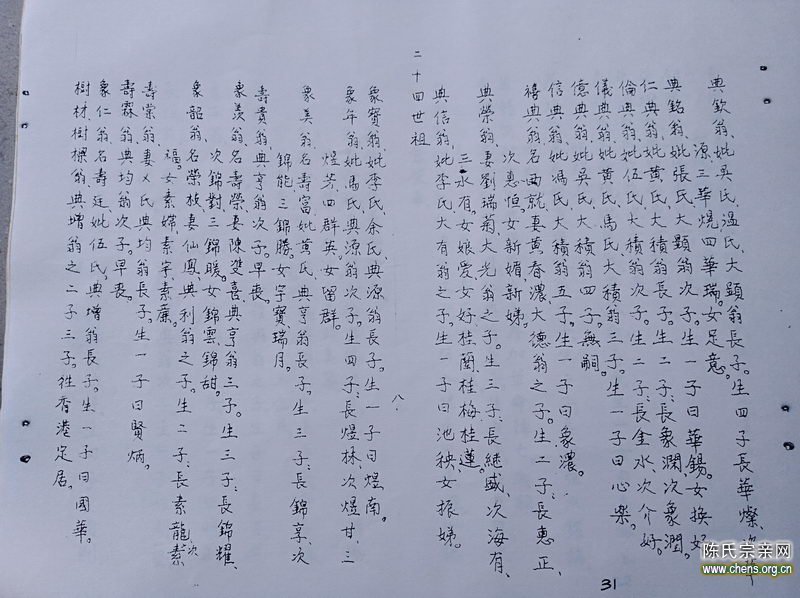 典欽翁、妣吳氏、溫氏、大顕翁長子。生四子長華燦、次華
源三華焜四華瑞。女足意。
典銘翁、妣張氏大顕翁次子。生一子曰華錫。女換好
仁典翁、妣黄氏大積翁長子。生二子、長象瀾次象潤。
倫典翁、妣伍氏大積翁次子。生二子、長金水次介好。
儀典翁妣黄氏、馬氏、大積翁三子。生一子曰心樂。
億典翁妣吳氏大積翁四子。無嗣。
信典翁、妣馮氏大積翁五子。生一子曰象濃。
禧典翁名西就妻黄春濃大德翁之子。生二子、長惠正、
次惠恒。女新媚、新娣。
典榮翁、妻劉瑞菊大光翁之子。生三子、長継盛、次海有、
三永有。女娘愛女好桂蘭桂梅桂蓮。
典信翁、妣李氏大有翁之子。生一子曰池秧女振娣。
二十四世祖
八.
象賓翁、妣李氏、余氏、典源翁長子。生一子曰煜南。
象年翁、妣馮氏典源翁次子。生四子、長煜林、次煜甘、三
煜芳四群英。女留群。
象美翁、名壽富妣黄氏、典亨翁長子。生三子、長錦享、次
錦能三錦勝。女字寶、瑞月。
壽貴翁、典亨翁次子。早喪。
象羨翁、名壽榮、妻陳雙喜、典亨翁三子。生三子、長錦耀、
次錦對三錦暖、女錦雲、錦甜。
象韶翁、名榮枝妻仙鳳典利翁之子。生二子、長素龍次素
福。女素嫦、素字素蓮。
壽棠翁、妻乂氏典均翁長子。生一子曰賢炳。
壽霖翁、典均翁次子。早喪。
象仁翁名壽廷妣伍氏典增翁長子。生一子曰國華。
樹材、樹樑翁、典增翁之二子三子。往香港定居。
31
陈氏宗亲网
www.chens.org.cn